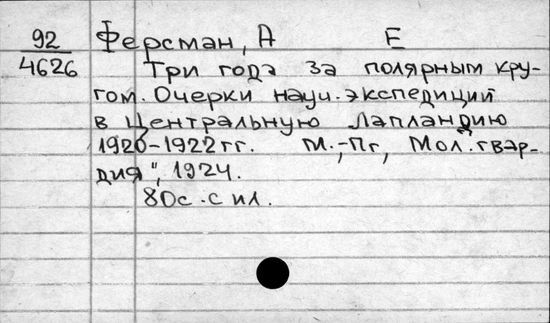 92 Ферсман, А Е
4626 Три года за полярным кру-
гом. Очерки науч. экспедиций
в Центральную Лапландию
1920-1922 гг. М.,-Пг, Мол. гвар-
дия", 1924.
80с. с ил.